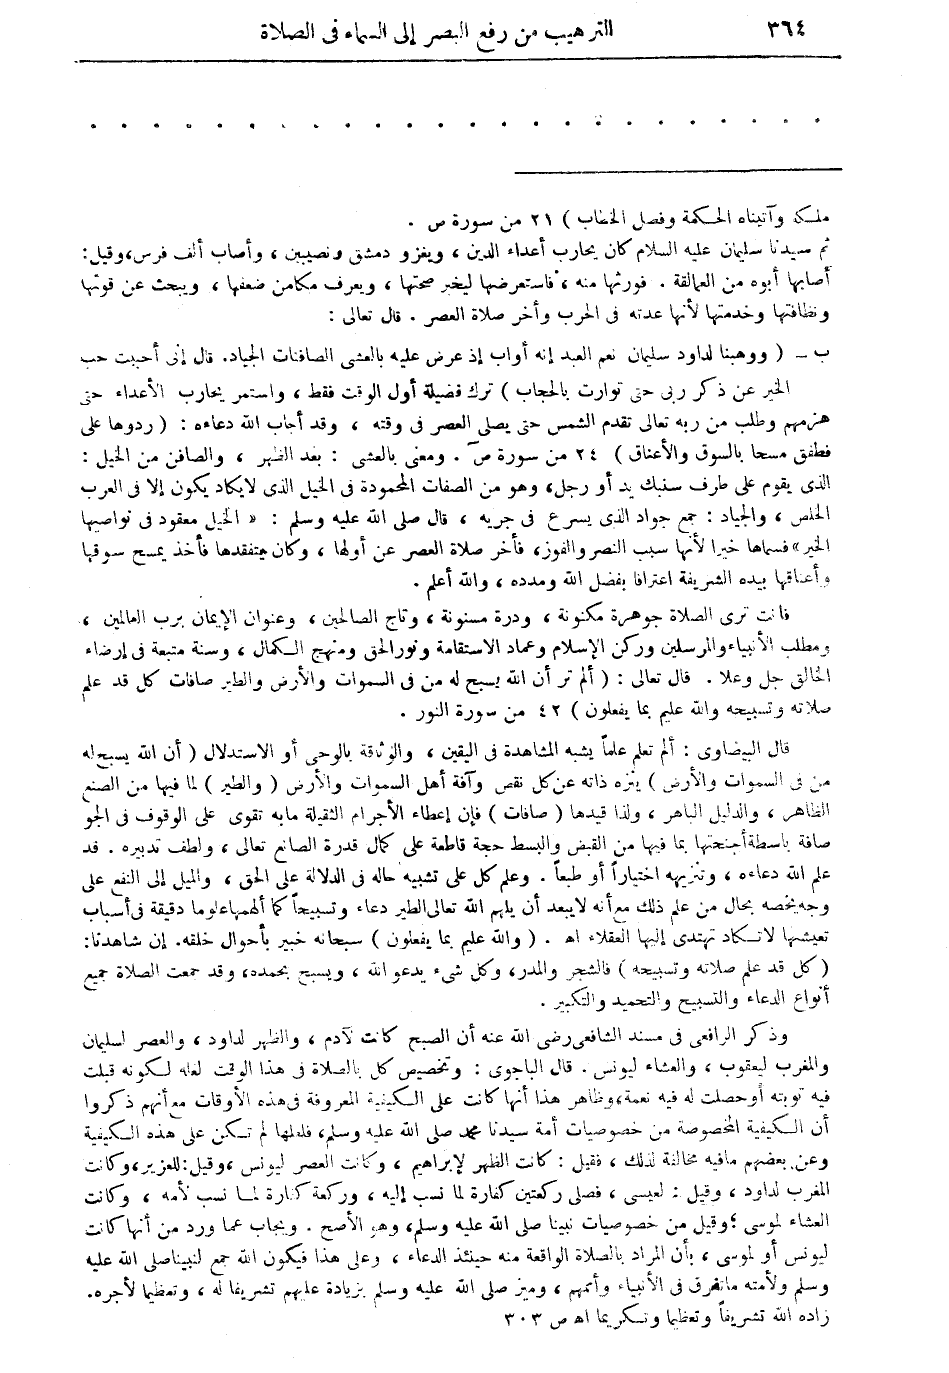 ٣٦٤ الترهيب من رفع البصر إلى السماء فى الصلاة
. . . . . . . . . . . . . . . . . . . . . . . .
ملكه وآتيناه الحكمة وفصل الخطاب ) ٢١ من سورة ص .
ثم سيدنا سليمان عليه السلام كان يحارب أعداء الدين ، ويغزو دمشق ونصيبين ، وأصاب ألف فرس، وقيل:
أصابها أبوه من العمالقة . فورثها منه ، فاستعرضها ليخبر صحتها ، ويعرف مكامن ضعفها ، ويبحث عن قوتها
ونظافتها وخدمتها لأنها عدته فى الحرب وأخر صلاة العصر . قال تعالى :
ب ـ ( ووهبنا لداود سليمان نعم العبد إنه أواب إذ عرض عليه بالعشى الصافنات الجياد. قال إنى أحببت حب
الخير عن ذكر ربى حتى توارت بالحجاب ) ترك فضيلة أول الوقت فقط ، واستمر يحارب الأعداء حتى
هزمهم وطلب من ربه تعالى تقدم الشمس حتى يصلى العصر فى وقته ، وقد أجاب الله دعاءه : ( ردوها على
فطفق مسحا بالسوق والأعناق ) ٢٤ من سورة ص . ومعنى بالعشى : بعد الظهر ، والصافن من الخيل :
الذى يقوم على طرف سنبك يد أو رجل، وهو من الصفات المحمودة فى الخيل الذى لايكاد يكون إلا فى العرب
الخلص ، والجياد : جمع جواد الذى يسرع فى جريه ، قال صلى الله عليه وسلم : « الخيل معقود فى نواصيها
الخير» فسماها خيرا لأنها سبب النصر والفوز، فأخر صلاة العصر عن أولها ، وكان يتفقدها فأخذ يمسح سوقها
وأعناقها بيده الشريفة اعترافا بفضل الله ومدده ، والله أعلم .
فانت ترى الصلاة جوهرة مكنونة ، ودرة مسنونة ، وتاج الصالحين، وعنوان الإيمان برب العالمين ،
ومطلب الأنبياء والمرسلين وركن الإسلام وعماد الاستقامة ونور الحق ومنهج الكمال ، وسنة متبعة فى إرضاء
الخالق جل وعلا . قال تعالى : ( ألم تر أن الله يسبح له من فى السموات والأرض والطير صافات كل قد علم
صلاته وتسبيحه والله عليم بما يفعلون ) ٤٢ من سورة النور .
قال البيضاوى : ألم تعلم علماً يشبه المشاهدة فى اليقين ، والوثاقة بالوحى أو الاستدلال ( أن الله يسبح له
من فى السموات والأرض ) ينزه ذاته عن كل نقص وآفة أهل السموات والأرض ( والطير ) لما فيها من الصنع
الظاهر ، والدليل الباهر ، ولذا قيدها ( صافات ) فإن إعطاء الأجرام الثقيلة مابه تقوى على الوقوف فى الجو
صافة باسطة أجنحتها بما فيها من القبض والبسط حجة قاطعة على كمال قدرة الصانع تعالى ، ولطف تدبيره . قد
علم الله دعاءه ، وتنزيهه اختياراً أو طبعاً . وعلم كل على تشبيه حاله فى الدلالة على الحق ، والميل إلى النفع على
وجه يخصه بحال من علم ذلك مع أنه لايبعد أن يلهم الله تعالى الطير دعاء وتسبيحاً كما ألهمها علوما دقيقة فى أسباب
تعيشها لاتكاد تهتدى إليها العقلاء اهـ . ( والله عليم بما يفعلون ) سبحانه خبير بأحوال خلقه. إن شاهدنا:
( كل قد علم صلاته وتسبيحه ) فالشجر والمدر، وكل شىء يدعو الله ، ويسبح بحمده، وقد جمعت الصلاة جميع
أنواع الدعاء والتسبيح والتحميد والتكبير .
وذكر الرافعى فى مسند الشافعى رضى الله عنه أن الصبح كانت لآدم ، والظهر لداود ، والعصر لسليمان
والمغرب ليعقوب ، والعشاء ليونس . قال الباجورى : وتخصيص كل بالصلاة فى هذا الوقت لعله لكونه قبلت
فيه توبته أو حصلت له فيه نعمة، وظاهر هذا أنها كانت على الكيفية المعروفة فى هذه الأوقات مع أنهم ذكروا
أن الكيفية المخصوصة من خصوصيات أمة سيدنا محمد صلى الله عليه وسلم، فلعلها لم تكن على هذه الكيفية
وعن بعضهم مافيه مخالفة لذلك ، فقيل : كانت الظهر لإبراهيم ، وكانت العصر ليونس ، وقيل: للعزير، وكانت
المغرب لداود ، وقيل : لعيسى ، فصلى ركعتين كفارة لما نسب إليه ، وركعة كفارة لما نسب لأمه ، وكانت
العشاء لموسى ؛ وقيل من خصوصيات نبينا صلى الله عليه وسلم، وهو الأصح . ويجاب عما ورد من أنها كانت
ليونس أو لموسى ، بأن المراد بالصلاة الواقعة منه حينئذ الدعاء ، وعلى هذا فيكون الله جمع لنبينا صلى الله عليه
وسلم ولأمته ماتفرق فى الأنبياء وأممهم ، وميز صلى الله عليه وسلم بزيادة عليهم تشريفا له ، وتعظيما لأجره.
زاده الله تشريفاً وتعظيما وتكريما اهـ ص ٣٠٣